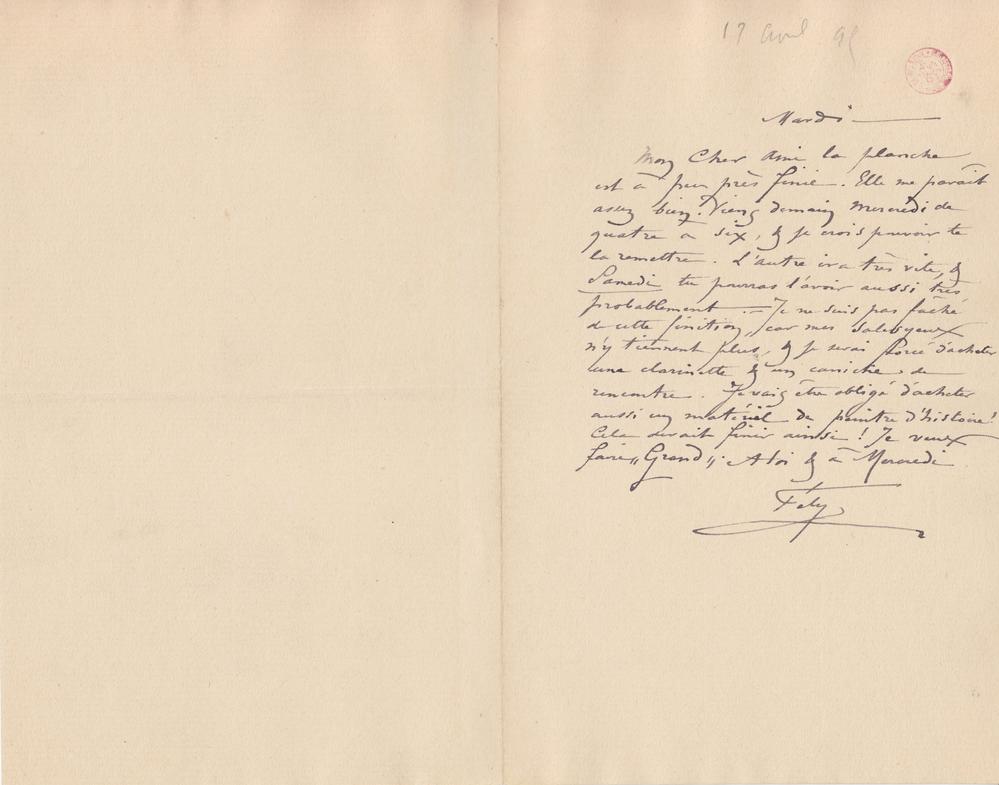 17 avril 95
Mardi
Mon Cher Ami la planche
est à peu près finie. Elle me paraît
assez bien. Viens demain Mercredi de
quatre à six, & je crois pouvoir te
la remettre. L'autre ira très vite, &
Samedi tu pourras l'avoir aussi très
probablement. — Je ne suis pas fâché
de cette finition, car mes sales yeux
n'y tiennent plus, & je serai forcé d'acheter
une clarinette & un caniche de
rencontre. Je vais être obligé d'acheter
aussi un matériel de peintre d'histoire!
Cela devait finir ainsi! Je veux
faire „Grand„. A toi & à Mercredi
Fély